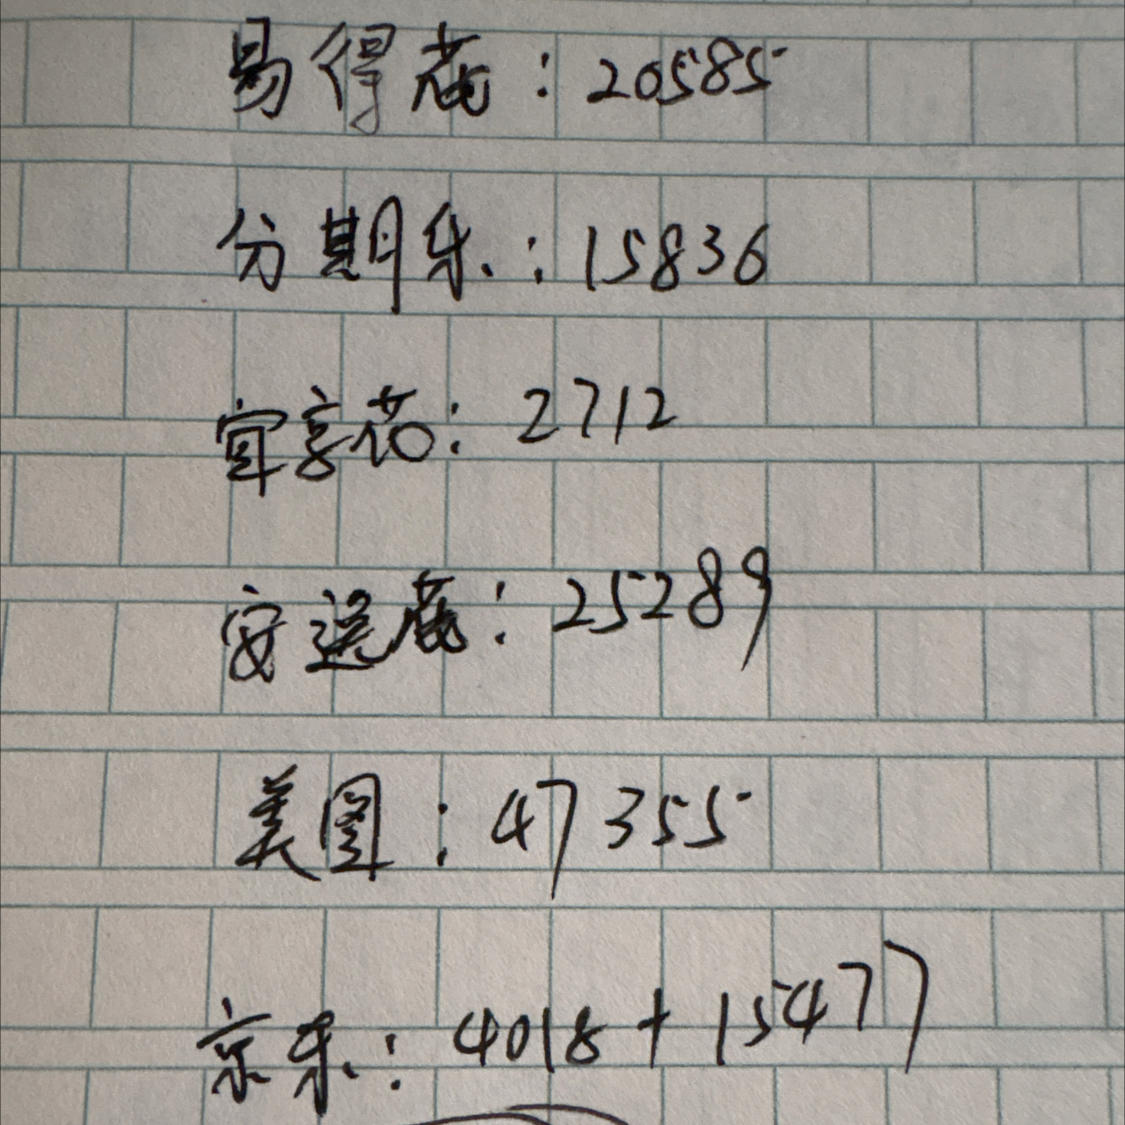 易得花：20585
分期乐：15836
宜享花：2712
安逸花：25289
美图：47355
京东：4018+15477